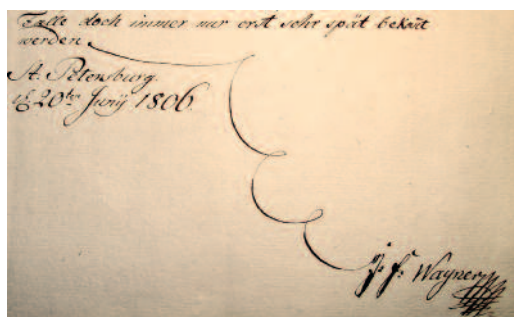 Falle doch immer nur erst sehr spät bekañt
werden.
St. Petersburg.
20ten Junÿ 1806.
J. J. Wagner